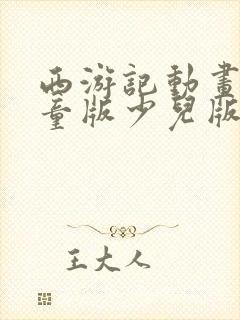 西游記動畫
童版少兒版
王大人